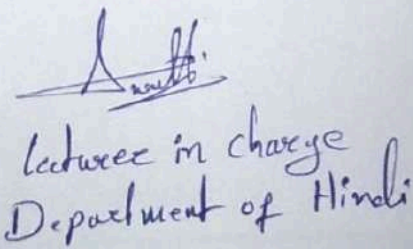 Lecturer in charge
Department of Hindi